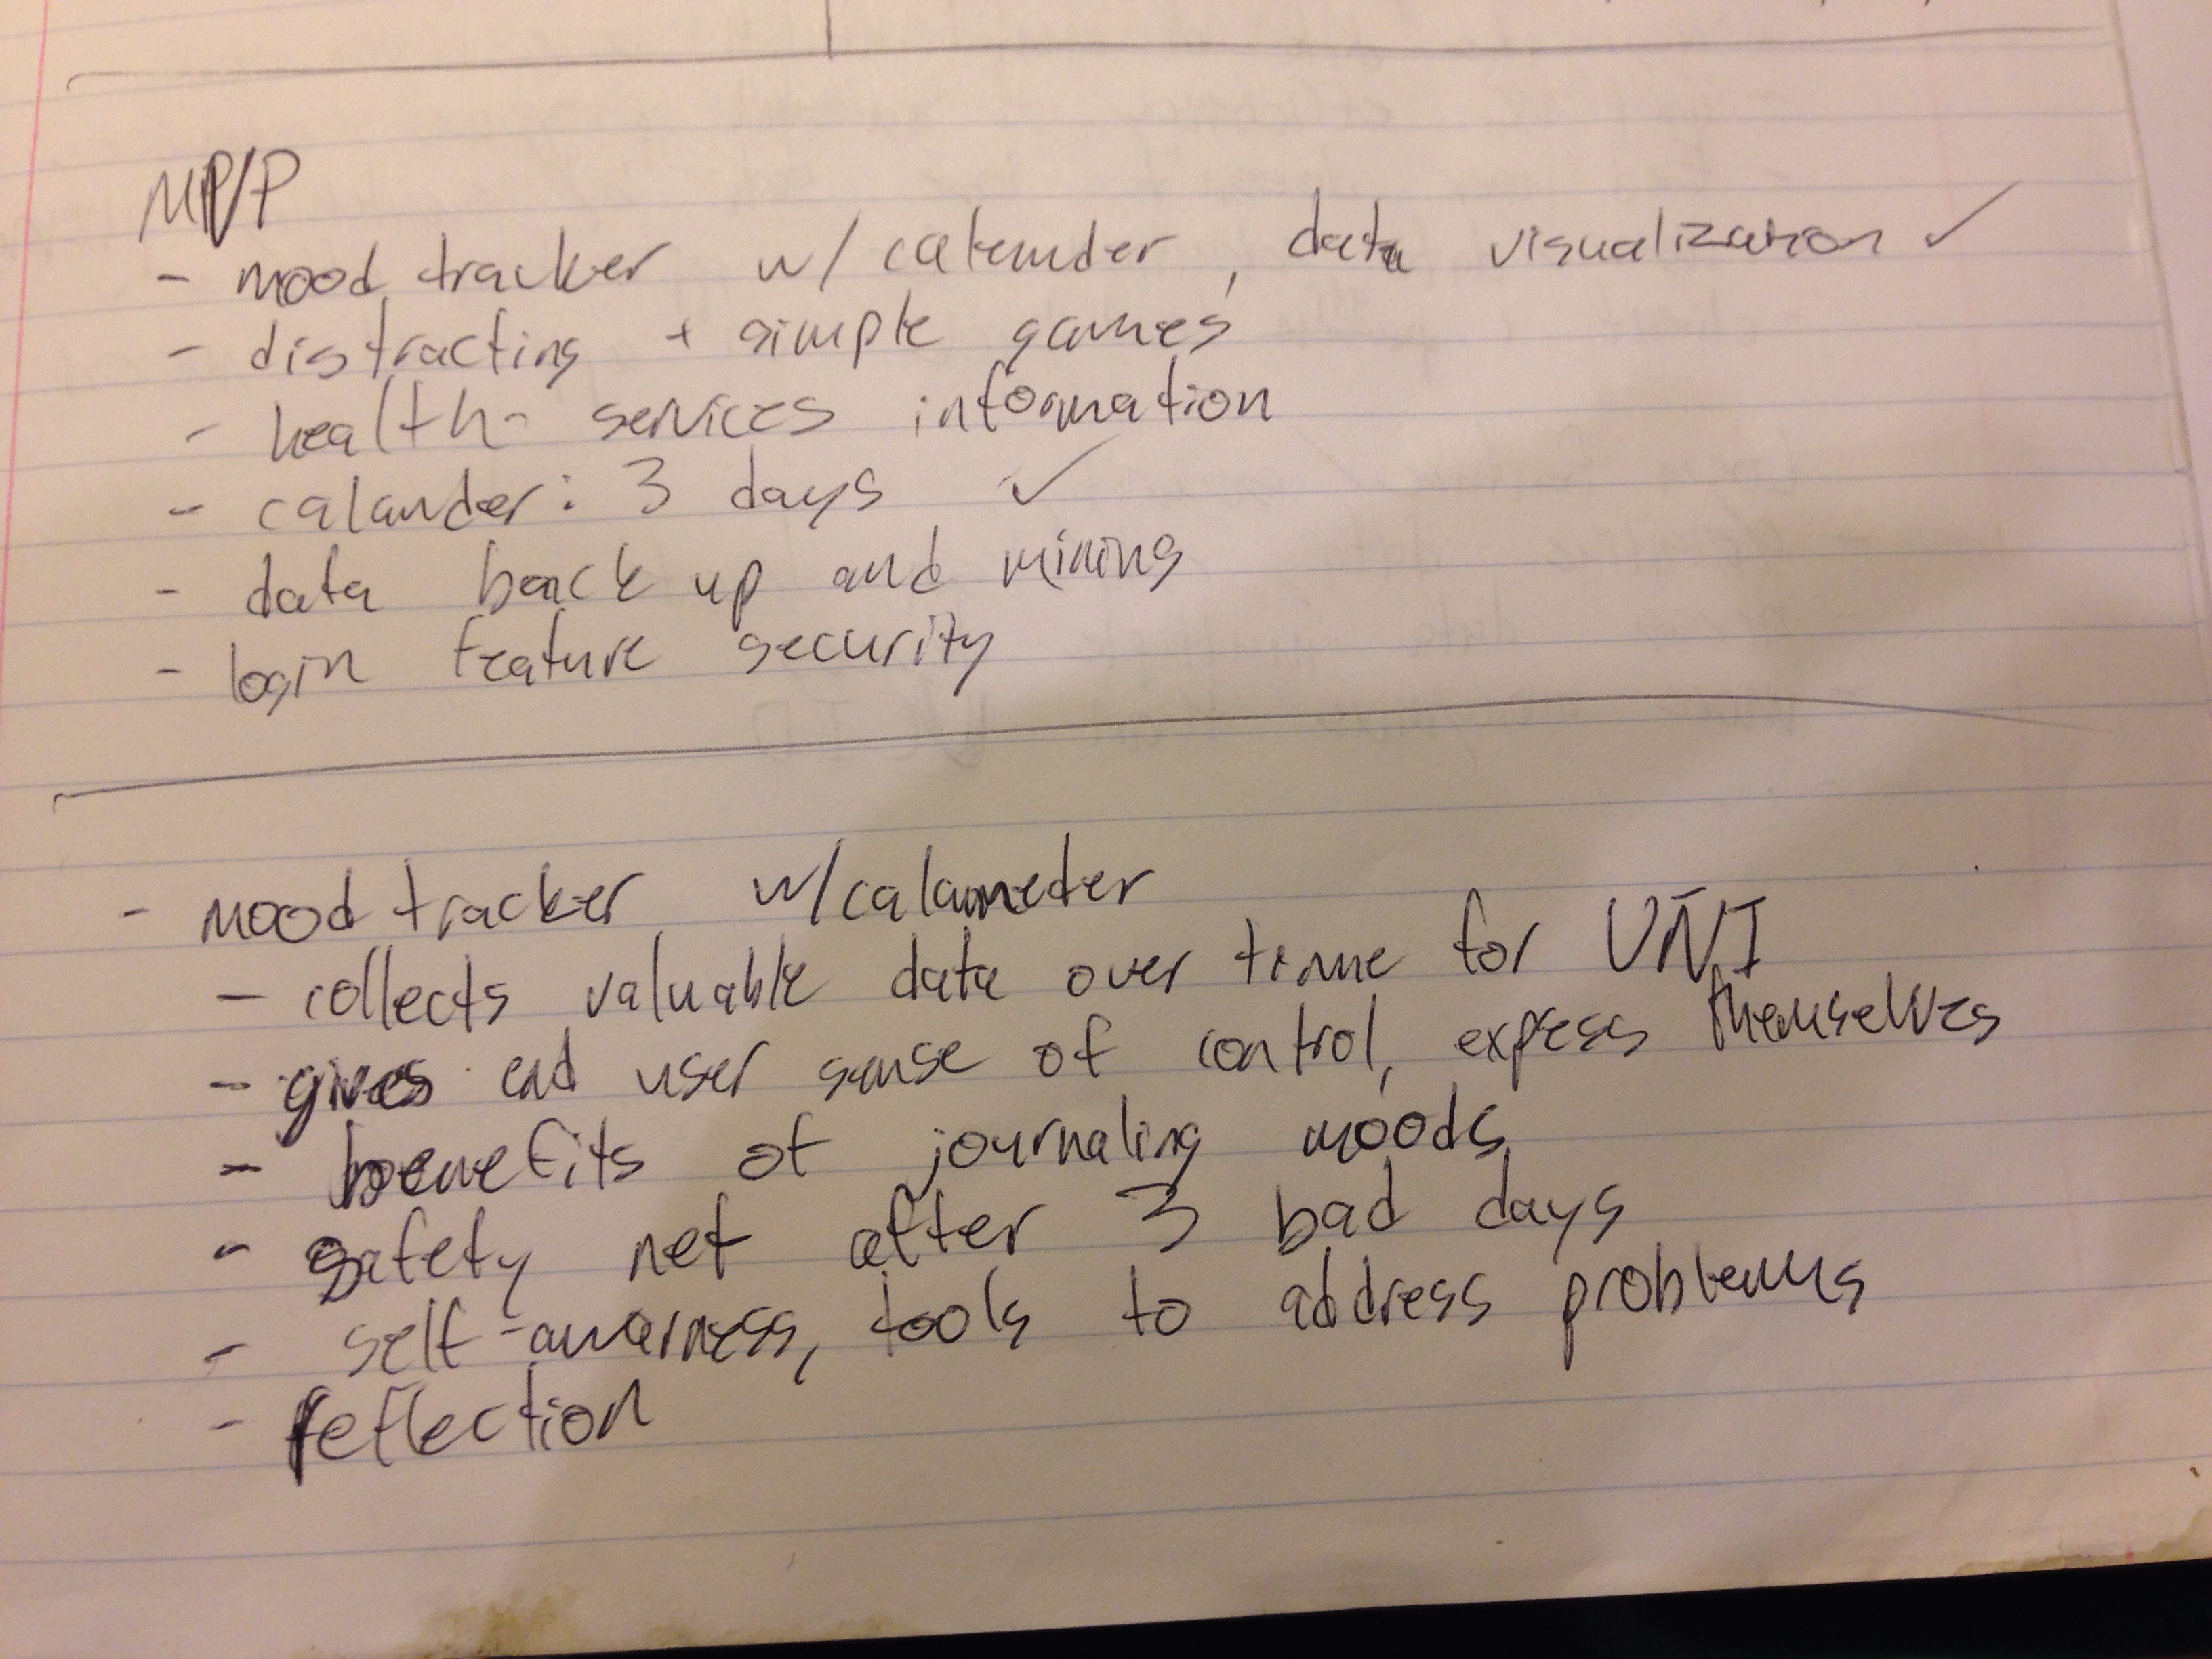 MVP
- mood tracker w/ calender, data visualization ✓
- distracting + simple games
- health services information
- calander: 3 days ✓
- data back up and mining
- login feature security
- mood tracker w/calaneder
- collects valuable data over time for
- gives end user sense of control, express themselves
- benefits of journaling moods
- safety net after 3 bad days
- self-awareness, tools to address problems
- reflection